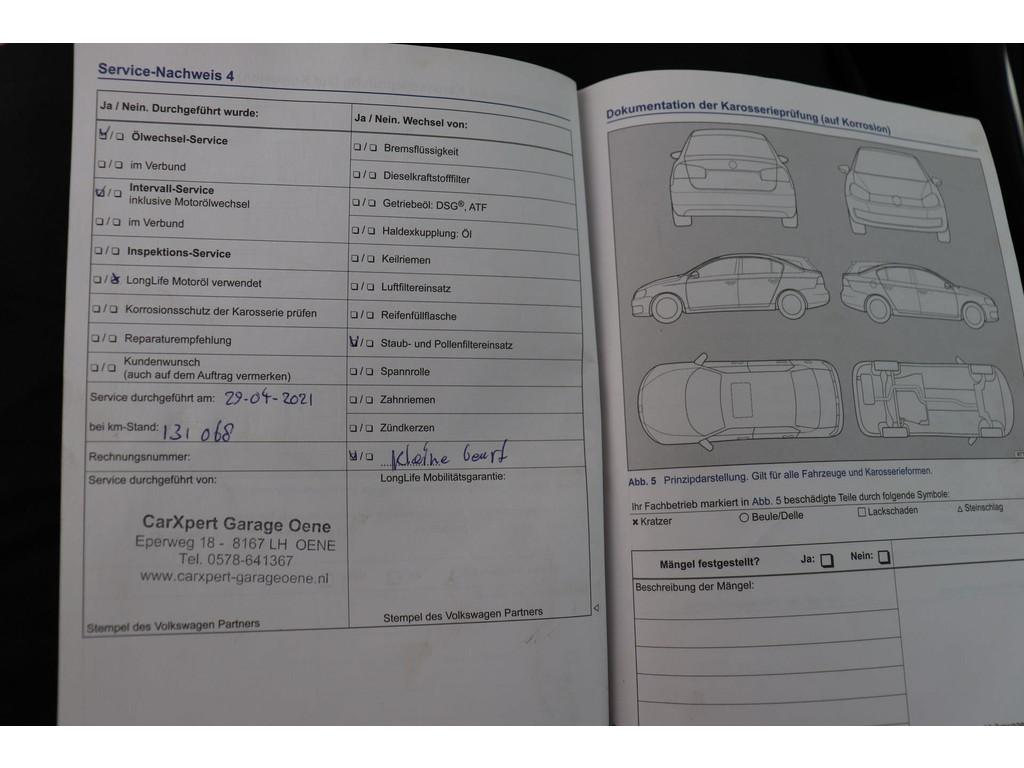 Service-Nachweis 4
Ja / Nein. Durchgeführt wurde:
☑/☐ Ölwechsel-Service
☐/☐ im Verbund
☑/☐ Intervall-Service
inklusive Motorölwechsel
☐/☐ im Verbund
☐/☐ Inspektions-Service
☐/☒ LongLife Motoröl verwendet
☐/☐ Korrosionsschutz der Karosserie prüfen
☐/☐ Reparaturempfehlung
☐/☐ Kundenwunsch
(auch auf dem Auftrag vermerken)
Service durchgeführt am: 29-04-2021
bei km-Stand: 131 068
Rechnungsnummer:
Service durchgeführt von:
CarXpert Garage Oene
Eperweg 18 - 8167 LH OENE
Tel. 0578-641367
www.carxpert-garageoene.nl
Stempel des Volkswagen Partners
Ja / Nein. Wechsel von:
☐/☐ Bremsflüssigkeit
☐/☐ Dieselkraftstofffilter
☐/☐ Getriebeöl: DSG®, ATF
☐/☐ Haldexkupplung: Öl
☐/☐ Keilriemen
☐/☐ Luftfiltereinsatz
☐/☐ Reifenfüllflasche
☑/☐ Staub- und Pollenfiltereinsatz
☐/☐ Spannrolle
☐/☐ Zahnriemen
☐/☐ Zündkerzen
☑/☐ Kleine beurt
LongLife Mobilitätsgarantie:
Stempel des Volkswagen Partners
Dokumentation der Karosserieprüfung (auf Korrosion)
Abb. 5 Prinzipdarstellung. Gilt für alle Fahrzeuge und Karosserieformen.
Ihr Fachbetrieb markiert in Abb. 5 beschädigte Teile durch folgende Symbole:
✖ Kratzer ○ Beule/Delle □ Lackschaden △ Steinschlag
Mängel festgestellt? Ja: ☐ Nein: ☐
Beschreibung der Mängel: